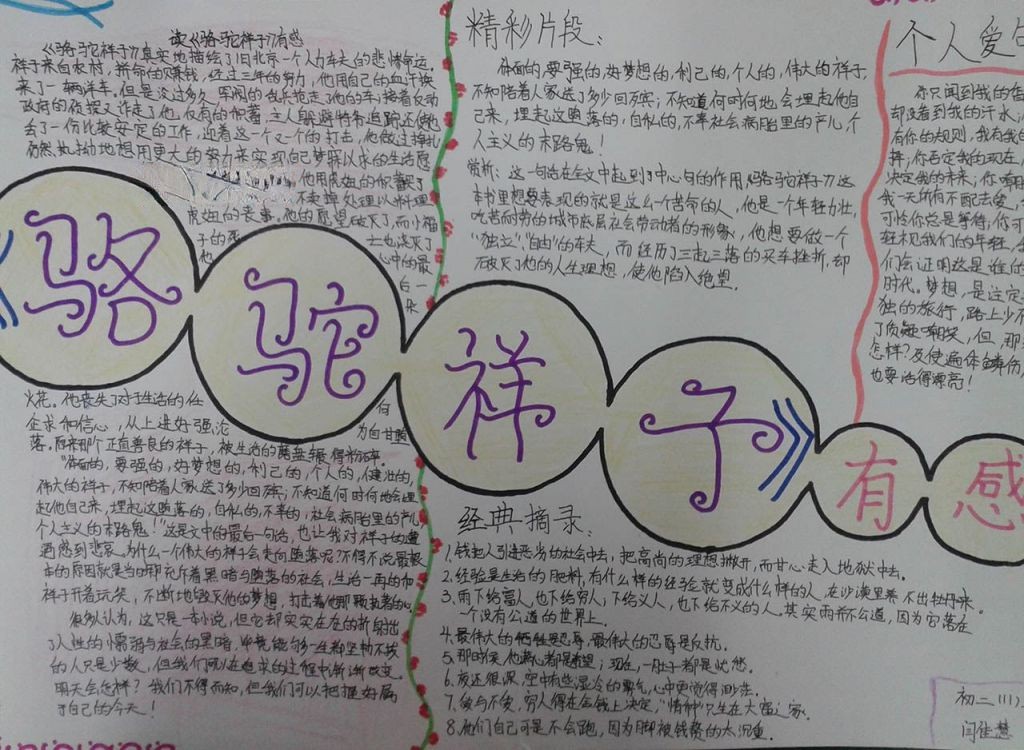 读《骆驼祥子》有感
《骆驼祥子》真实地描绘了旧北京一个人力车夫的悲惨命运。
祥子来自农村，拼命的赚钱，经过三年的努力，他用自己的血汗换
来了一辆洋车。但是没过多久，军阀的乱兵抢走了他的车；接着反动
政府的侦探又诈走了他仅有的积蓄，主人躲避特务追踪还使他
丢了一份比较安定的工作，迎着这一个又一个的打击，他做过挣扎
仍然执拗地想用更大的努力来实现自己梦寐以求的生活愿
他用虎妞的积蓄买了
不卖掉处理以料理
虎妞的丧事。他的愿望破灭了，而小福
子的死
士也浇灭了
他
心中的最
后一朵
火花。他丧失了对于生活的任
何
企求和信心，从上进好强沦
为自甘堕
落。原来那个正直善良的祥子，被生活的磨盘辗得粉碎。
“体面的，要强的，好梦想的，利己的，个人的，健壮的，
伟大的祥子，不知陪着人家送了多少回殡；不知道何时何地会埋
起他自己来，埋起这堕落的，自私的，不幸的，社会病胎里的产儿，
个人主义的末路鬼！”这是文中的最后一句话，也让我对祥子的遭
遇感到悲哀。为什么一个伟大的祥子会走向堕落呢？不得不说最根
本的原因就是当时那充斥着黑暗与堕落的社会，生活一再的和
祥子开着玩笑，不断地毁灭他的梦想，打击着他那颗执着的心
很多人认为，这只是一本小说，但它却实实在在的折射出
了人性的懦弱与社会的黑暗，毕竟能够一生都坚韧不拔
的人只是少数，但我们可以在追求的过程中渐渐改变。
明天会怎样？我们不得而知，但我们可以把握好属
于自己的今天！
精彩片段：
体面的，要强的，好梦想的，利己的，个人的，伟大的祥子，
不知陪着人家送了多少回殡；不知道何时何地会埋起他自
己来，埋起这堕落的，自私的，不幸社会病胎里的产儿，个
人主义的末路鬼！
赏析：这一句话在全文中起到了中心句的作用，《骆驼祥子》这
本书里想要表现的就是这么一个苦命的人，他是一个年轻力壮，
吃苦耐劳的城市底层社会劳动者的形象，他想要做一个
“独立”，“自由”的车夫，而经历了三起三落的买车挫折，却
破灭了他的人生理想，使他陷入绝望。
个人爱句
你只闻到我的香
却没看到我的汗水；
有你的规则，我有我的
择，你否定我的现在，
决定我的未来；你嘲
我一无所有不配去爱，
可怜你总是等待，你可
轻视我们的年轻，
们会证明这是谁的
时代。梦想，是注定
独的旅行，路上少不
了质疑嘲笑，但，那
怎样？及使遍体鳞伤，
也要活得漂亮！
《骆驼祥子》有感
经典摘录：
1.钱把人引进恶劣的社会中去，把高尚的理想撇开，而甘心走入地狱中去。
2.经验是生活的肥料，有什么样的经验就变成什么样的人，在沙漠里养不出牡丹来。
3.雨下给富人，也下给穷人；下给义人，也下给不义的人。其实雨并不公道，因为它落在
一个没有公道的世界上。
4.最伟大的牺牲是忍辱，最伟大的忍辱是反抗。
5.那时候，他满心都是希望；现在，一肚子都是忧愁。
6.夜还很深，空中有些湿冷的雾气，心中更觉得渺茫。
7.爱与不爱，穷人得在金钱上决定，“情种”只生在大富之家。
8.他们自己可是不会跑，因为脚被钱赘的太沉重。
初三(11)
闫佳慧